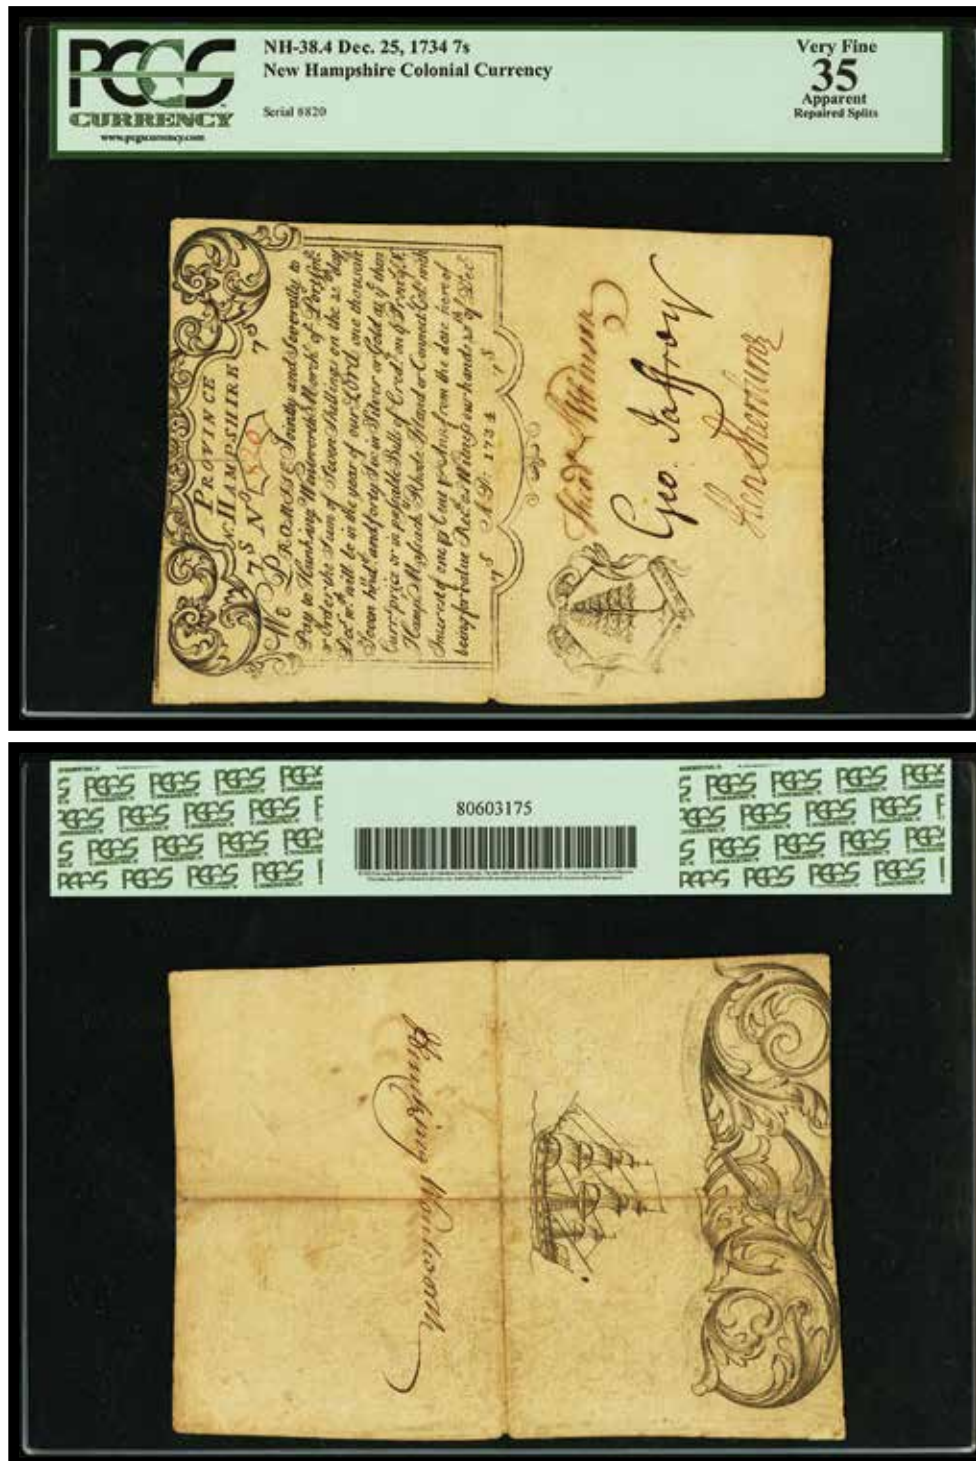 PCGS
CURRENCY
www.pcgscurrency.com
NH-38.4 Dec. 25, 1734 7s
New Hampshire Colonial Currency
Serial #820
Very Fine
35
Apparent
Repaired Splits
PROVINCE
N. HAMPSHIRE
7S No 820 7s
We PROMISE Jointly and Severally to
Pay to Hunking Wentworth Merch.t of
or Order the Sum of Seven Shillings on the 25th day
Decr. wch. will be in the year of our LORD one thousand
Seven hundd. and forty Six in Silver or Gold at ye then
Currt. price or in passable Bills of Credt. on ye Provce. N.
Hampr. Massach. Rhode Island or Connect. Col. with
Interest of one pr Cent pr Ann from the date hereof
being for value Recd. as Witness our hands 25th of Decr.
7s A.D. 1734 7s
Andw Wiggin
Geo. Jaffrey
Hen Sherburne
PCGS PCGS PCGS
80603175
PCGS PCGS PCGS
Hunking Wentworth